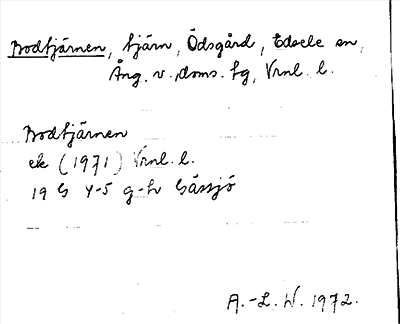 Bodtjärnen, tjärn, Ödsgård, Edsele sn,
Ång. v. doms. fg, Vrnl. l.
Bodtjärnen
ek (1971) Vrnl. l.
19 G 4-5 g-h Gåssjö
A.-L. W. 1972.